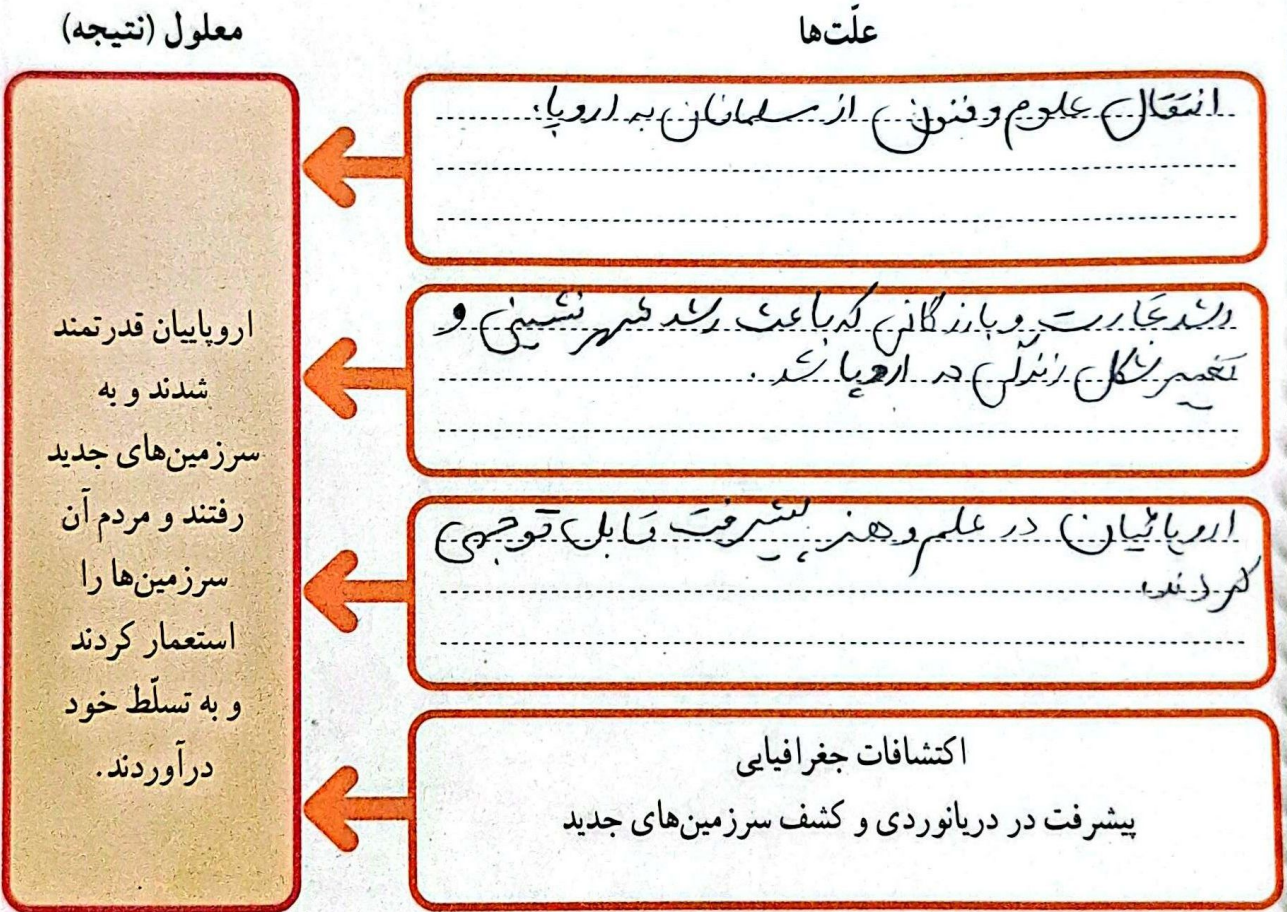 علّت‌ها
معلول (نتیجه)
انتقال علوم و فنون از مسلمانان به اروپا.
رشد تجارت و بازرگانی که باعث رشد شهرنشینی و
تغییر شکل زندگی در اروپا شد.
اروپائیان در علم و هنر پیشرفت قابل توجهی
کردند.
اکتشافات جغرافیایی
پیشرفت در دریانوردی و کشف سرزمین‌های جدید
اروپاییان قدرتمند
شدند و به
سرزمین‌های جدید
رفتند و مردم آن
سرزمین‌ها را
استعمار کردند
و به تسلّط خود
درآوردند.